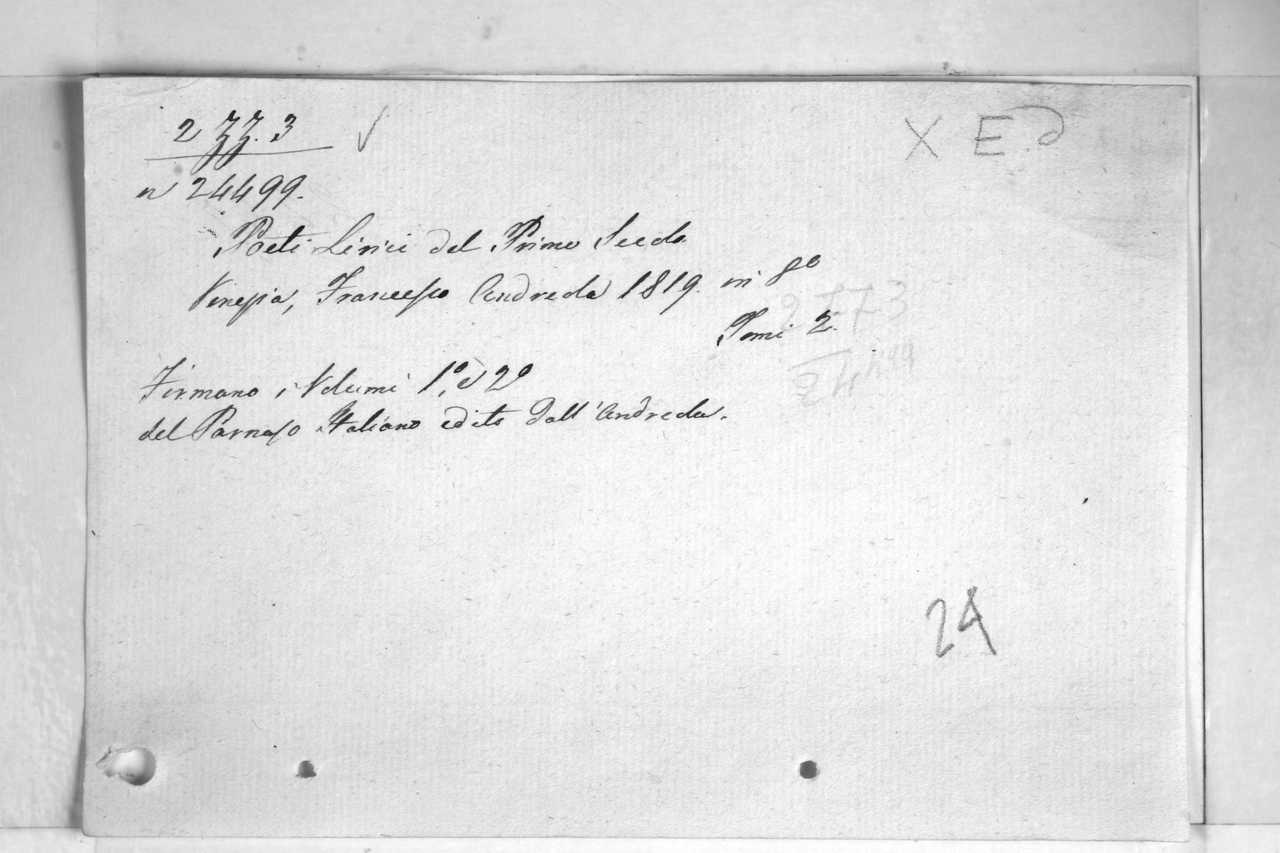 2 ZZ. 3 ✓
X E.d
n 24499.
Poeti Lirici del Primo Secolo
Venezia, Francesco Andreola 1819. in 8º
Tomi 2.
2 Z Z 3
24499
Formano i Volumi 1º, e 2º
del Parnaso Italiano edito dall'Andreola.
24